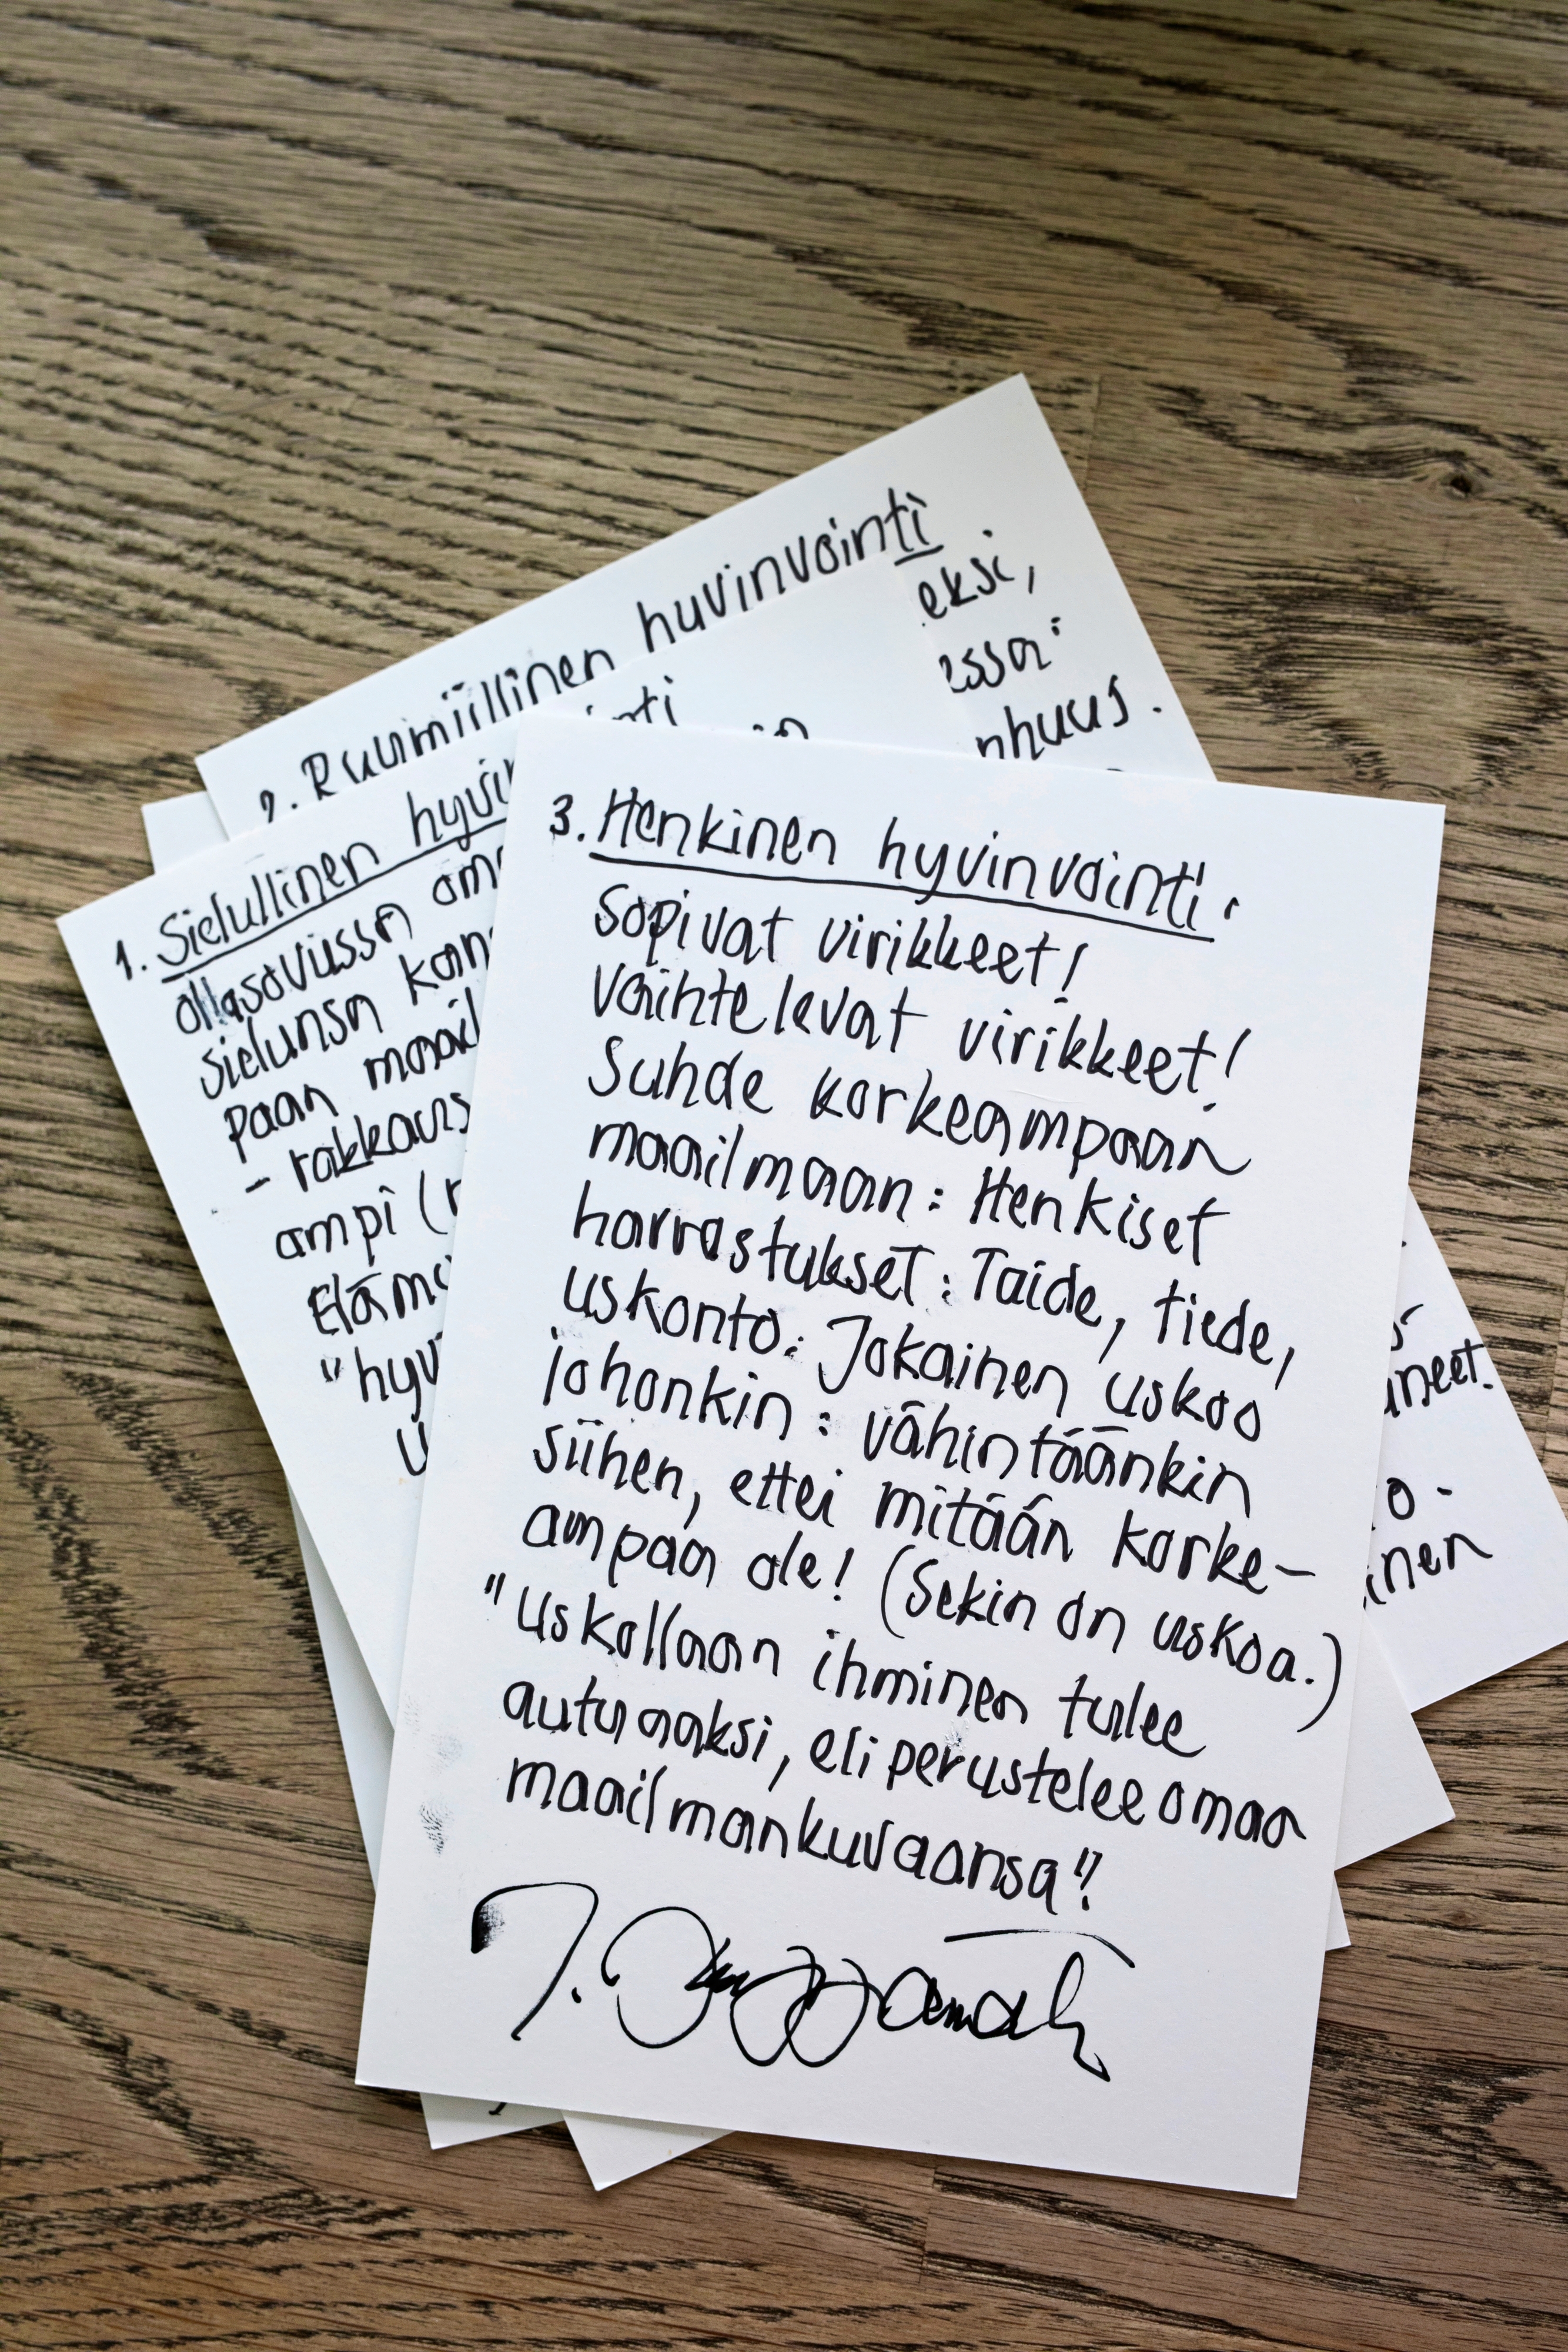 2. Ruumiillinen huvinvointi
eksi,
essa"
nhuus.
inti
1. Sielullinen hyvin
olla sovussa oma
sielunsa kans
paan maail
- rakkaus
ampi (
Eläm
"hyv
3. Henkinen hyvinvointi.
Sopivat virikkeet!
Vaihtelevat virikkeet!
Suhde korkeampaan
maailmaan: Henkiset
harrastukset: Taide, tiede,
uskonto: Jokainen uskoo
johonkin: vähintäänkin
siihen, ettei mitään korke-
ampaa ole! (Sekin on uskoa.)
"Uskollaan ihminen tulee
autuaaksi, eli perustelee omaa
maailmankuvaansa"!
uneet.
o-
inen